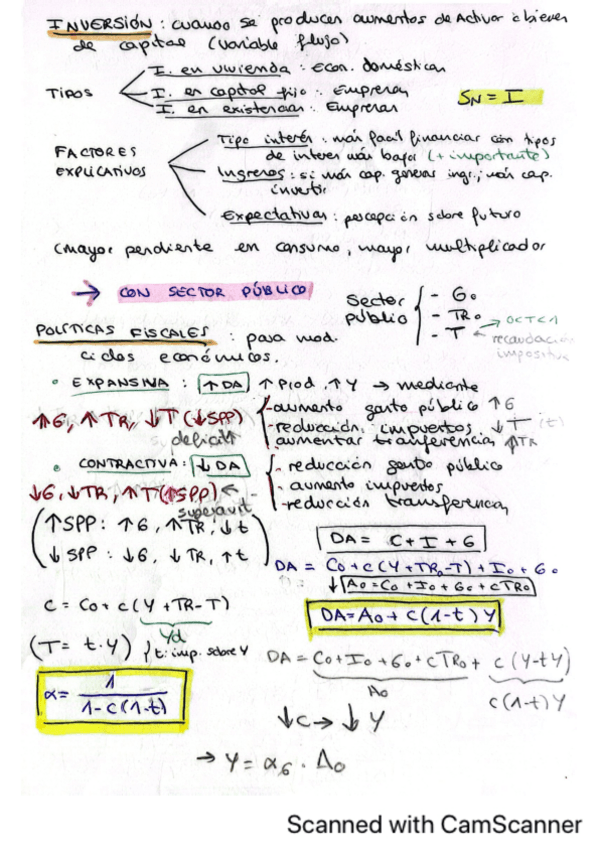 INVERSIÓN : cuando se producen aumentos de Activos o bienes
de capital (variable flujo)
TIPOS
I. en vivienda : Econ. domésticas
I. en capital fijo : Empresas
I. en existencias : Empresas
SN = I
FACTORES EXPLICATIVOS
Tipo interés : más fácil financiar con tipos
de interés más bajos (+ importante)
Ingresos : si más cap. generas ingr., más cap.
invertir
Expectativas : percepción sobre futuro
(mayor pendiente en consumo, mayor multiplicador
→ CON SECTOR PÚBLICO
Sector público
- G₀
- TR₀
- T → 0<t<1
recaudación impositiva
POLÍTICAS FISCALES : para mod.
ciclos económicos.
• EXPANSIVA : ↑DA ↑Prod. ↑Y → mediante
↑G, ↑TR, ↓T (↓SPP)
deficit
- aumento gasto público ↑G
- reducción impuestos ↓T (t)
- aumentar transferencia ↑TR
• CONTRACTIVA : ↓DA
↓G, ↓TR, ↑T (↑SPP)
superavit
- reducción gasto público
- aumento impuestos
- reducción transferencias
(↑SPP : ↑G, ↑TR, ↓t)
(↓SPP : ↓G, ↓TR, ↑t)
DA = C+I+G
DA = C₀+c(Y+TR₀-T)+I₀+G₀
↓ A₀=C₀+I₀+G₀+cTR₀
DA=A₀+c(1-t)Y
C = C₀+c(Y+TR-T)
Yd
(T= t·Y) t: imp. sobre Y
α= 1 / 1-c(1-t)
DA = C₀+I₀+G₀+cTR₀+ c(Y-tY)
A₀ c(1-t)Y
↓c→↓Y
→ Y= α₆ · A₀
Scanned with CamScanner